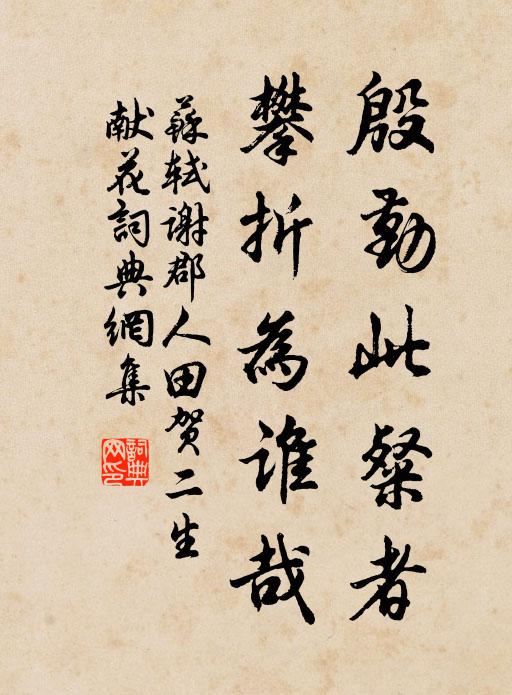 殷勤此粲者
攀折為誰哉
蘇軾谢郡人田贺二生
献花詞典網集
詞典
网印